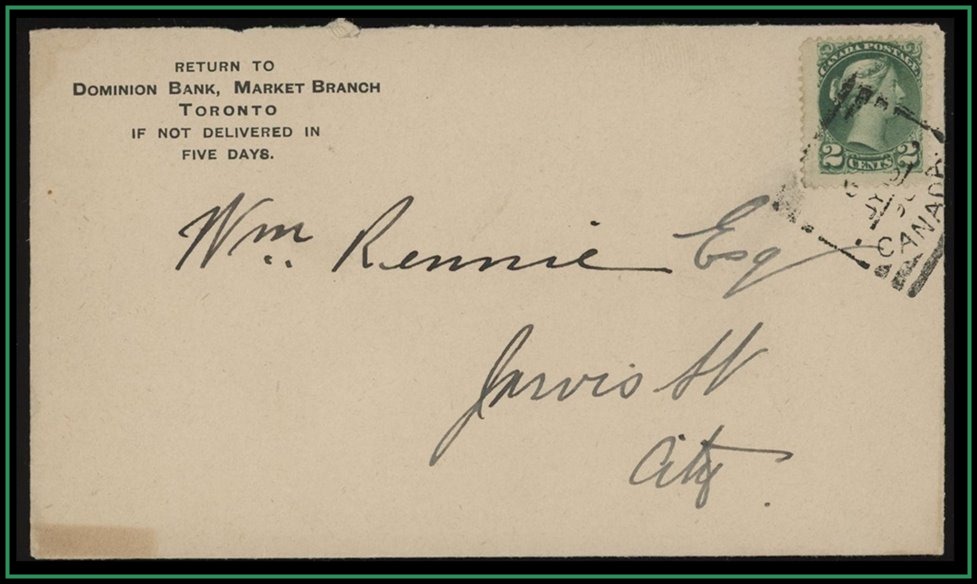 RETURN TO
DOMINION BANK, MARKET BRANCH
TORONTO
IF NOT DELIVERED IN
FIVE DAYS.
CANADA POSTAGE
2 CENTS 2
CANADA
Wm. Rennie Esq
Jarvis St
City.